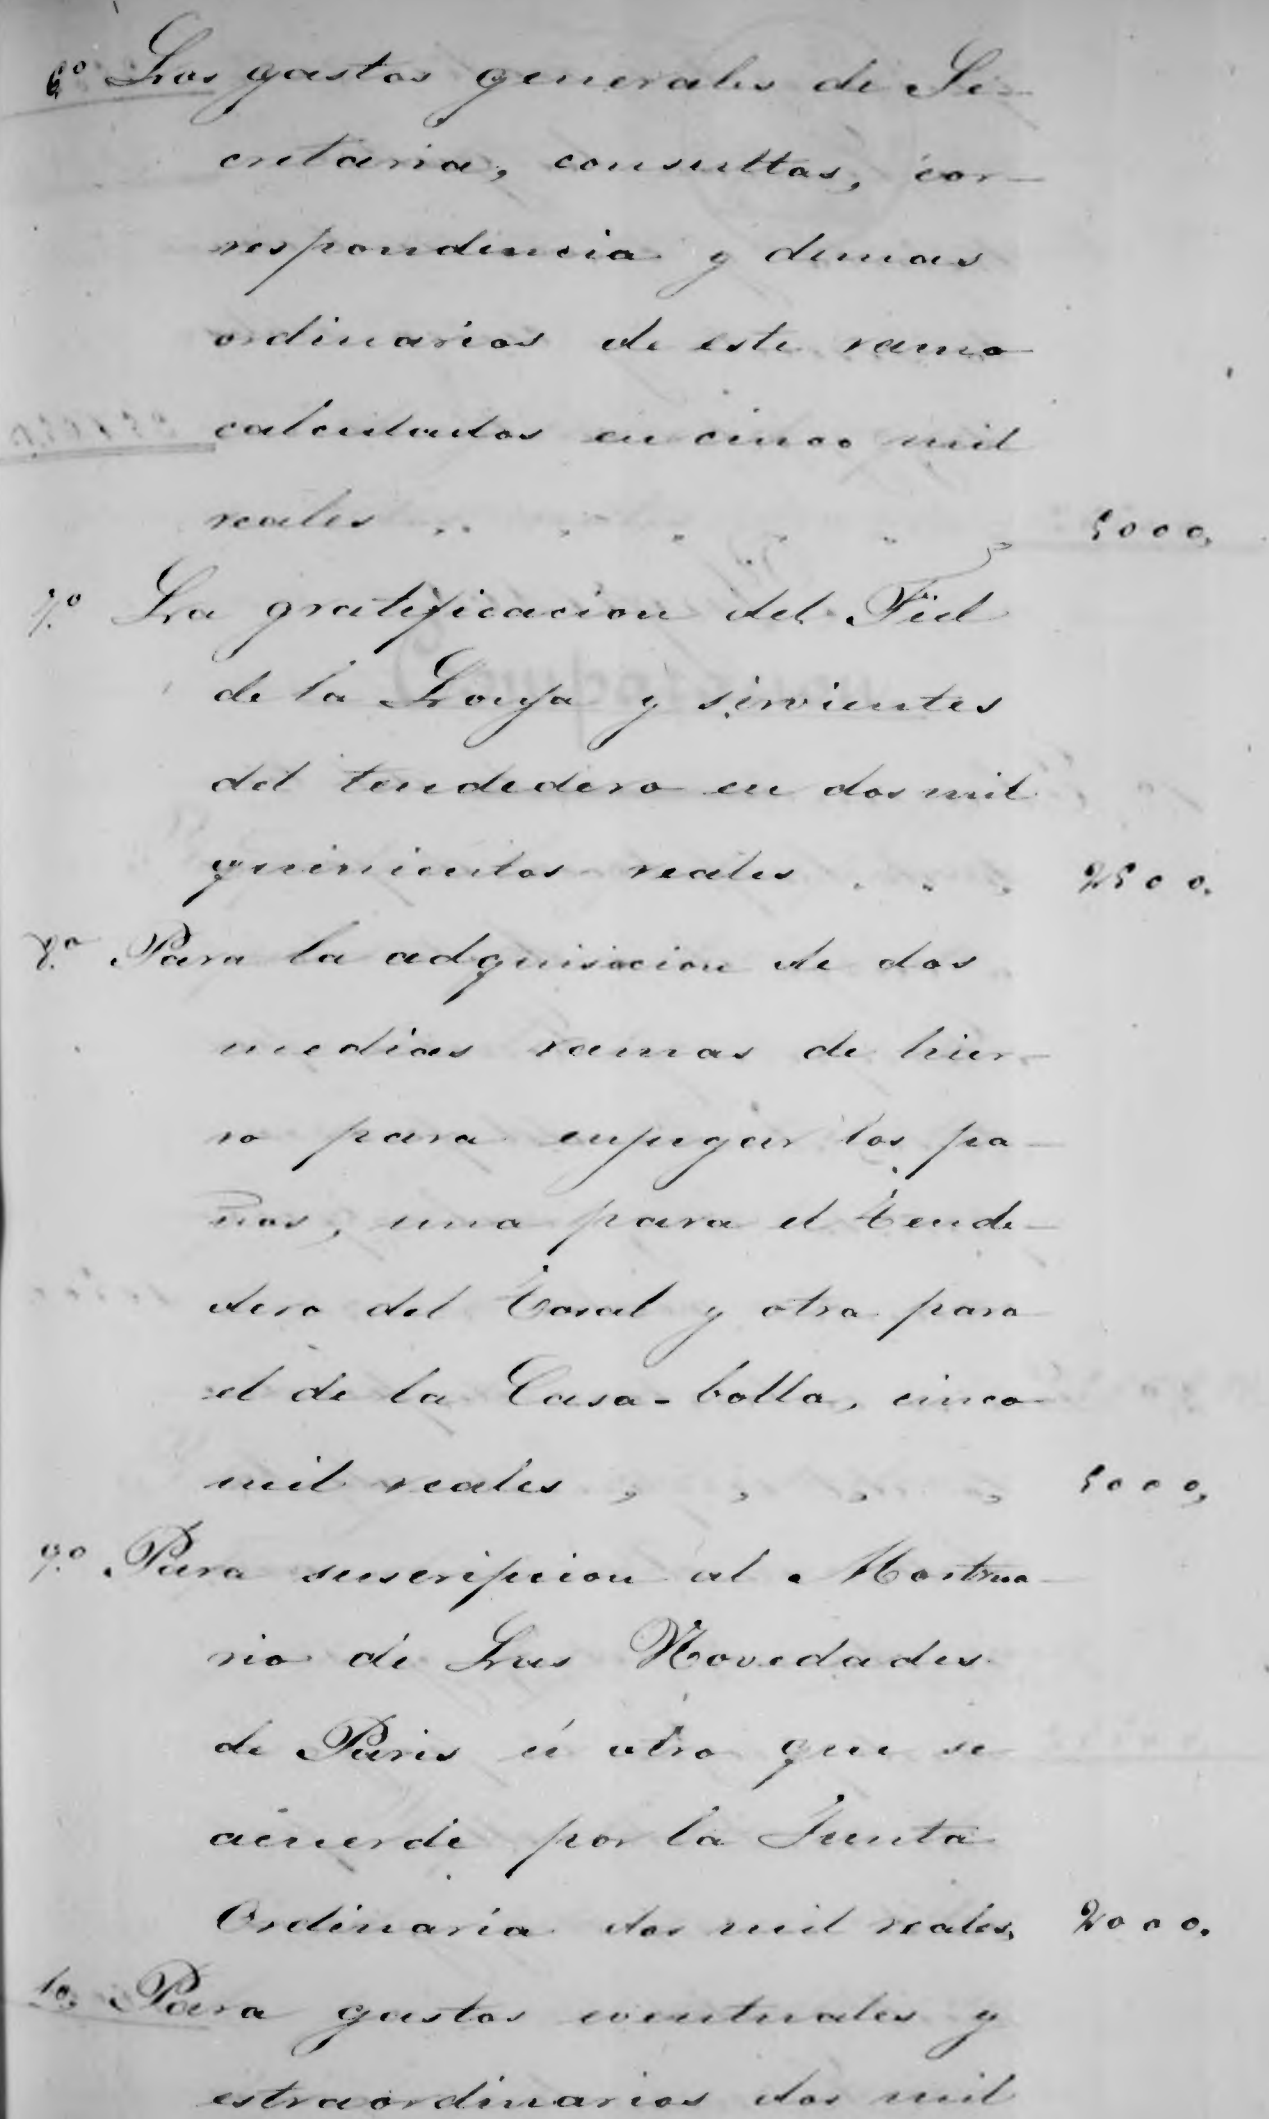 6º Los gastos generales de Se-
cretaria, consultas, cor-
respondencia y demas
ordinarios de este ramo
calculados en cinco mil
reales 5000,
7.º La gratificacion del Fiel
de la Lonja y sirvientes
del tendedero en dos mil
quinientos reales 2500.
8.º Para la adquisicion de dos
medias ramas de hier-
ro para enjugar los pa-
ños, una para el tende-
dero del Tosal y otra para
el de la Casa-bolla, cinco
mil reales 5000,
9.º Para suscripcion al Mostrua-
rio de Las Novedades
de Paris ú otro que se
acuerde por la Junta
Ordinaria dos mil reales, 2000.
10. Para gastos eventuales y
estraordinarios dos mil